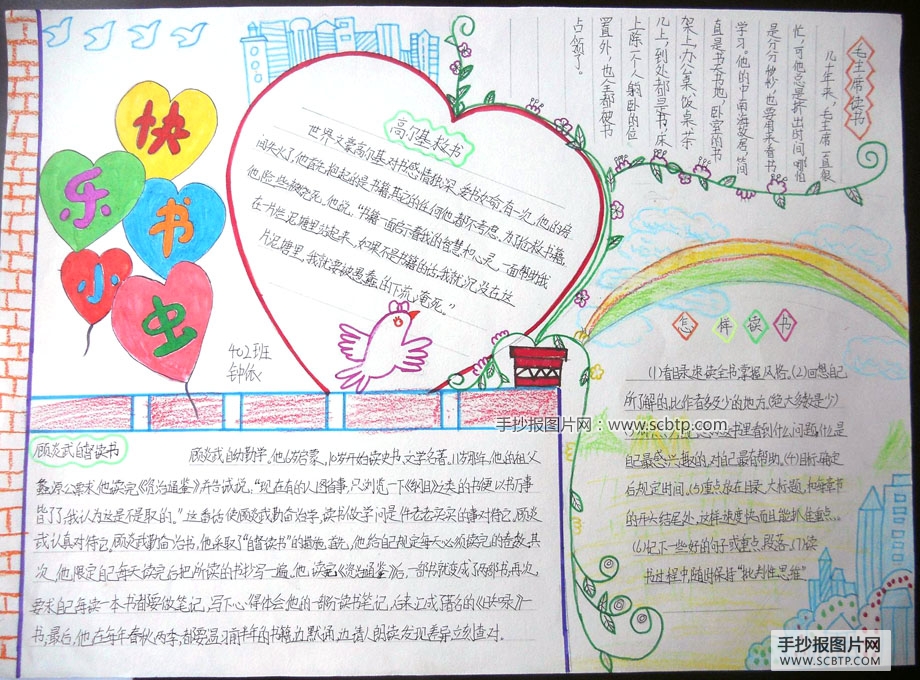 快
乐
书
小
虫
402班
高尔基救书
世界文豪高尔基对书感情独深,爱书如命.有一次,他的房
间失火了,他首先抱起的是书籍,其它的任何他都不考虑.为了抢救书籍,
他险些被烧死.他说:"书籍一面启示着我的智慧和心灵,一面帮助我
在一片烂泥塘里站起来,如果不是书籍的话,我就沉没在这
片泥塘里,我就要被愚蠢的下流淹死."
毛主席读书
几十年来,毛主席一直很
忙,可他总是挤出时间,哪怕
是分分秒秒,也要用来看书
学习。他的中南海故居,简
直是书天书地,卧室的书
架上,办公桌、饭桌、茶
几上,到处都是书,床
上除一个人躺卧的位
置外,也全都被书
占领了。
怎样读书
(1)看目录速读全书掌握风格.(2)回想自
所了解的此作者多少的地方.(绝大多数是少)
书里看到什么问题,什么是
自己最感兴趣的,对自己最有帮助.(4)目标确定
后规定时间.(5)重点放在目录,大标题,和每章节
的开头结尾处,这样速度快而且能抓住重点...
(6)记下一些好的句子或重点段落.(7)读
书过程中随时保持"批判性思维"
手抄报图片网:www.scbtp.com
顾炎武自督读书
顾炎武自幼勤学。他6岁启蒙,10岁开始读史书、文学名著。11岁那年,他的祖父
蠡源公要求他读完《资治通鉴》并告诫说:"现在有的人图省事,只浏览一下《纲目》之类的书便以为万事
皆了,我认为这是不足取的。"这番话使顾炎武勤奋治学,读书做学问是件老老实实的事对待之。顾炎
武认真对待之。顾炎武勤奋治书,他采取了"自督读书"的措施:首先,他给自己规定每天必须读完的卷数,其
次,他限定自己每天读完后把所读的书抄写一遍。他读完《资治通鉴》后,一部书就变成了两部书,再次,
要求自己每读一本书都要做笔记,写下心得体会.他的一部份读书笔记,后来汇成了著名的《日知录》一
书,最后,他在每年春秋两季,都要温习前半年的书籍,边默诵,边请人朗读,发现差异,立刻查对.
手抄报图片网
WWW.SCBTP.COM